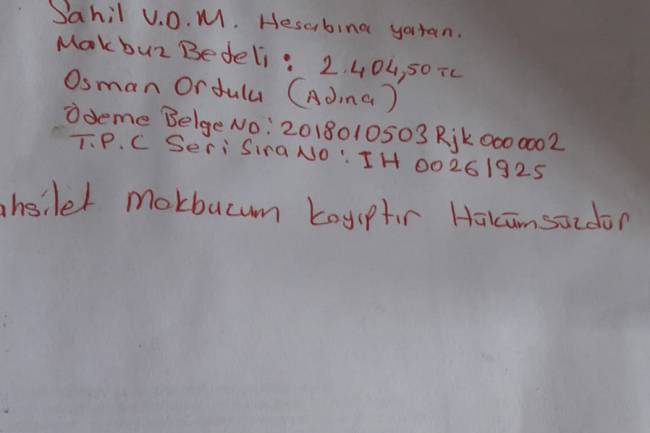 Sahil V.D.M. Hesabına yatan.
Makbuz Bedeli : 2.404,50 TL
Osman Ordulu (Adına)
Ödeme Belge No: 2018010503Rjk0000002
T.P.C Seri Sıra No : IH 00261925
ahsilet Makbuzum kayıptır Hükümsüzdür